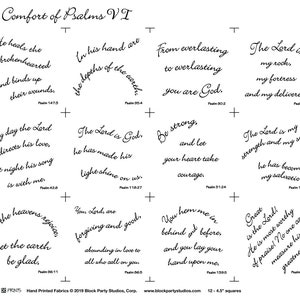 Comfort of Psalms VI
He heals the
brokenhearted
and binds up
their wounds.
Psalm 147:3
In his hand are
the depths of the earth.
Psalm 95:4
From everlasting
to everlasting
you are God.
Psalm 90:2
The Lord is
my rock,
my fortress
and my deliverer
day the Lord
directs his love,
at night his song
is with me.
Psalm 42:8
The Lord is God,
he has made his
light shine on us.
Psalm 118:27
Be strong,
and let
your heart take
courage.
Psalm 31:24
The Lord is my
strength and my
he has become
my salvation
the heavens rejoice,
let the earth
be glad,
Psalm 96:11
You, Lord, are
forgiving and good,
abounding in love to
all who call on you.
Psalm 86:5
You hem me in,
behind and before,
and you lay your
hand upon me.
Psalm 139:5
Great
is the Lord!
He is most worthy
of praise! No one can
measure his
greatness.
PRINTS Hand Printed Fabrics © 2019 Block Party Studios, Corp. www.blockpartystudios.com 12 - 4.5" squares